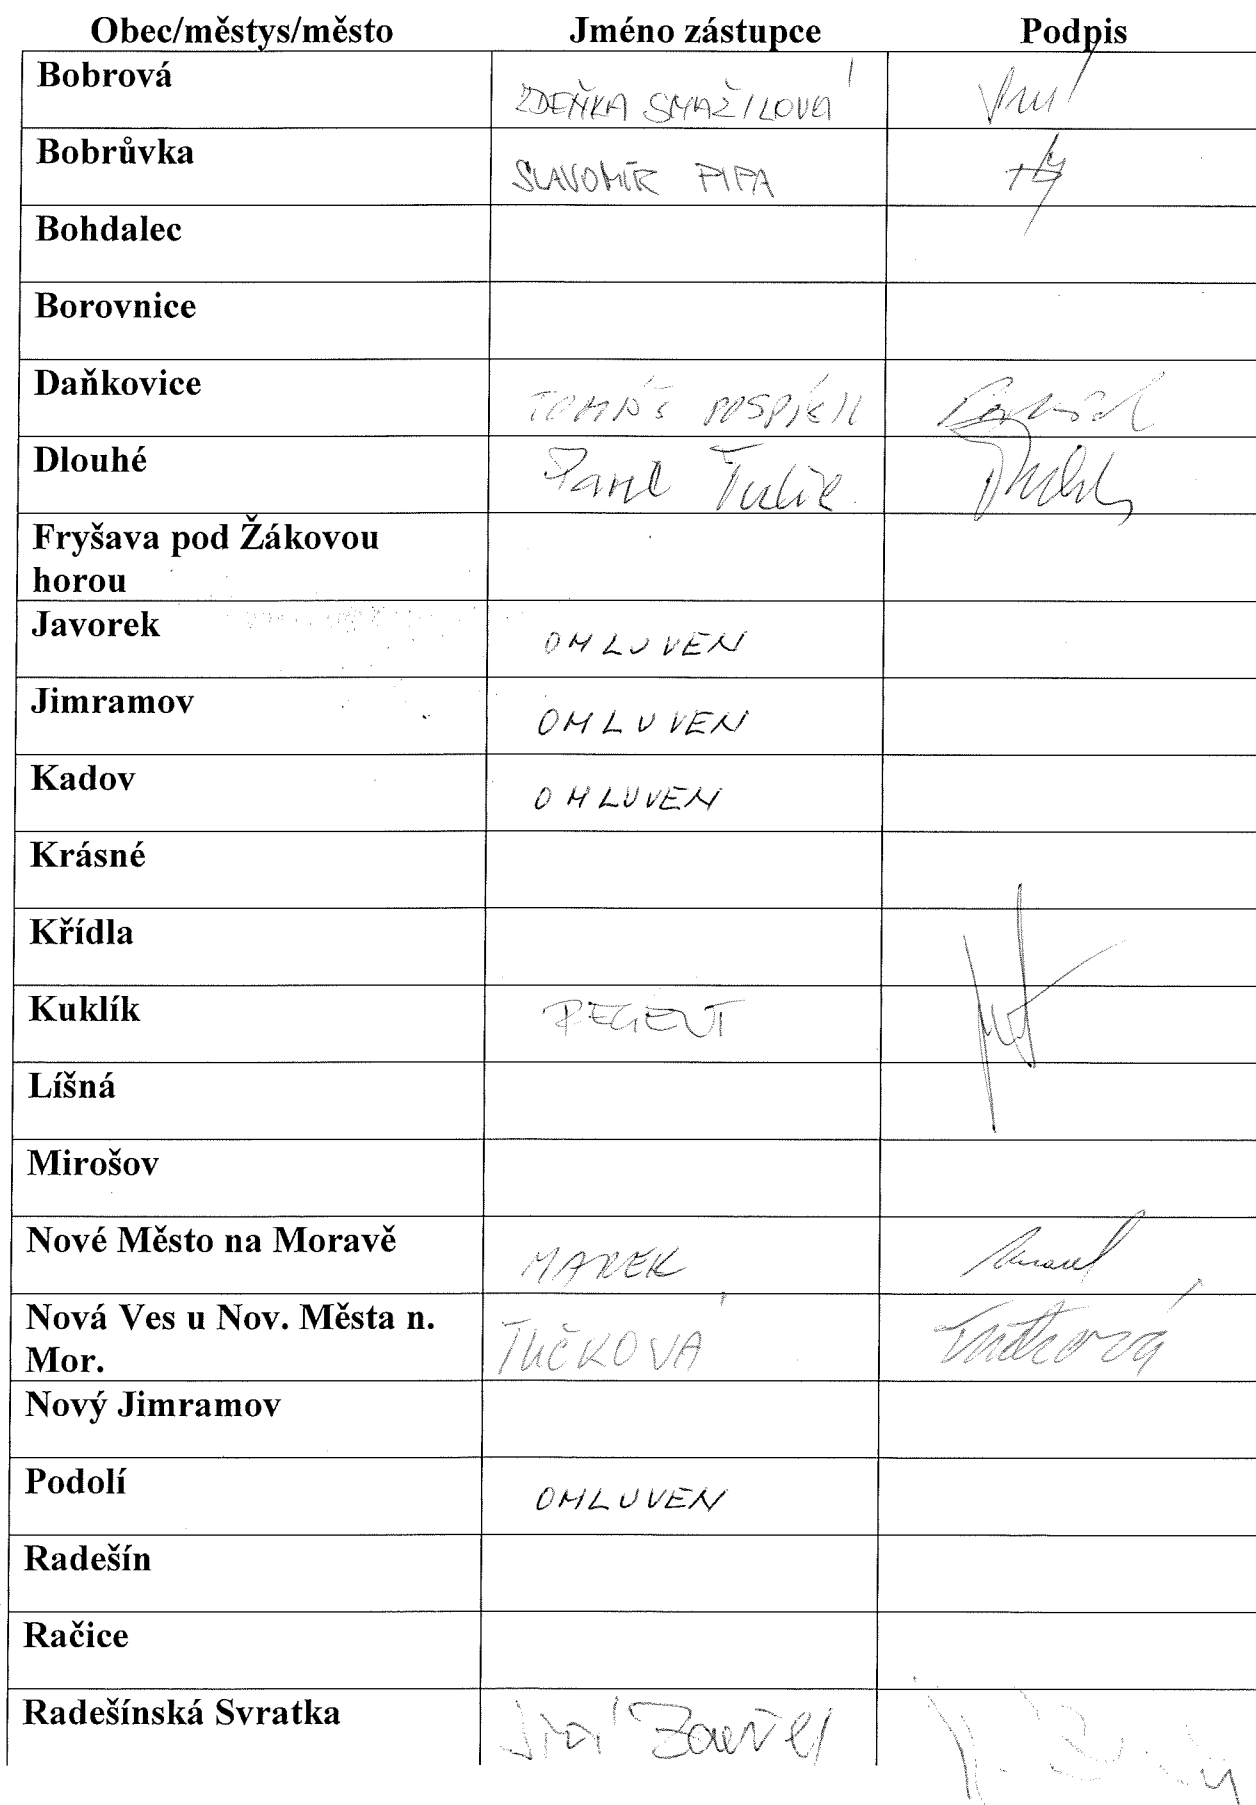 Obec/městys/město Jméno zástupce Podpis
Bobrová ZDEŇKA SMAŽILOVÁ
Bobrůvka SLAVOMÍR PIPA
Bohdalec
Borovnice
Daňkovice TOMÁŠ POSPÍŠIL
Dlouhé Pavel
Fryšava pod Žákovou
horou
Javorek OMLUVEN
Jimramov OMLUVEN
Kadov OMLUVEN
Krásné
Křídla
Kuklík REGENT
Líšná
Mirošov
Nové Město na Moravě MAREK
Nová Ves u Nov. Města n.
Mor. TUČKOVÁ Tučková
Nový Jimramov
Podolí OMLUVEN
Radešín
Račice
Radešínská Svratka Jiří